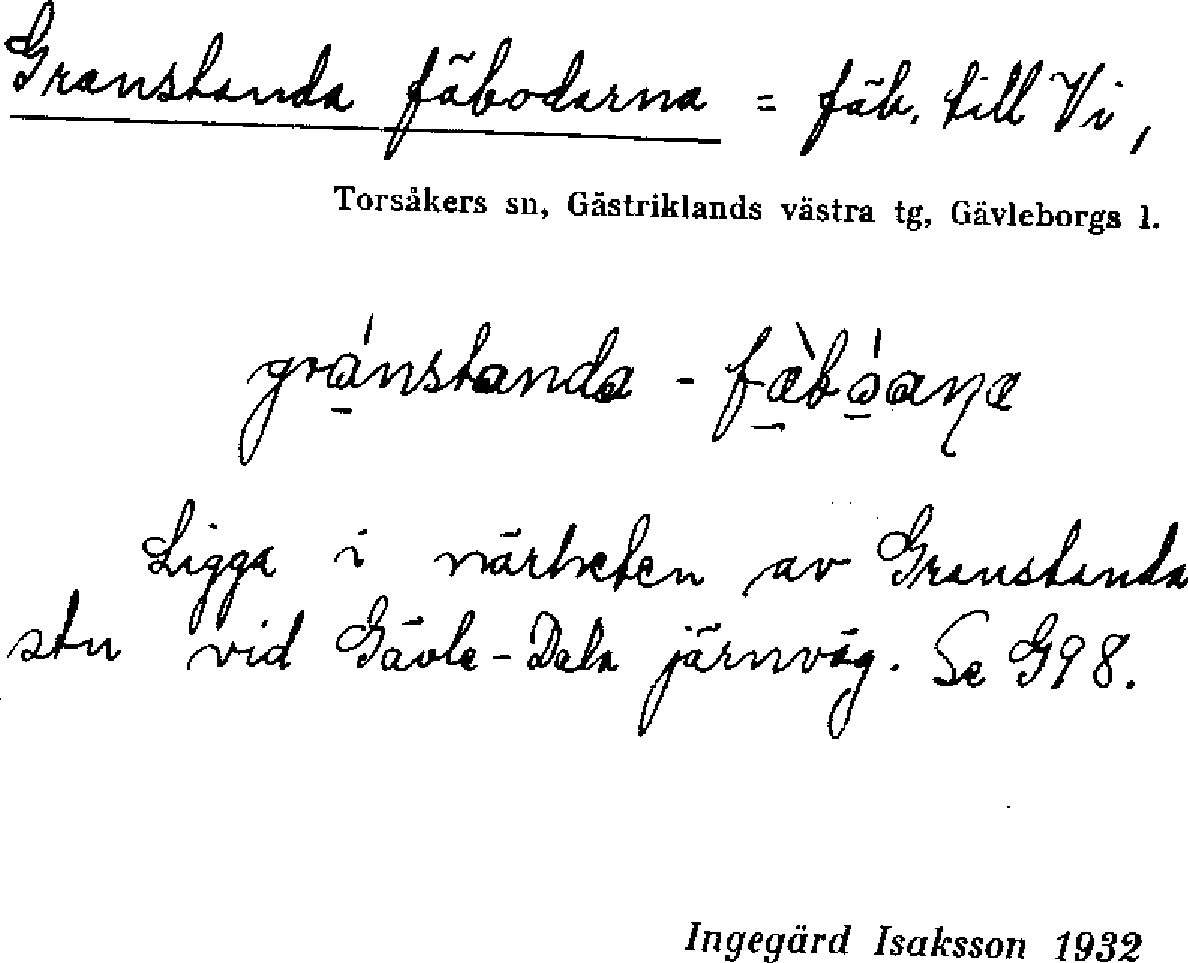 Granstanda fäbodarna = fäb. till Vi,
Torsåkers sn, Gästriklands västra tg, Gävleborgs l.
gra̱´nstanda - fæ̱̀bå̱´aṇa
Ligga i närheten av Granstanda
stn vid Gävle-Dala järnväg. Se G98.
Ingegärd Isaksson 1932